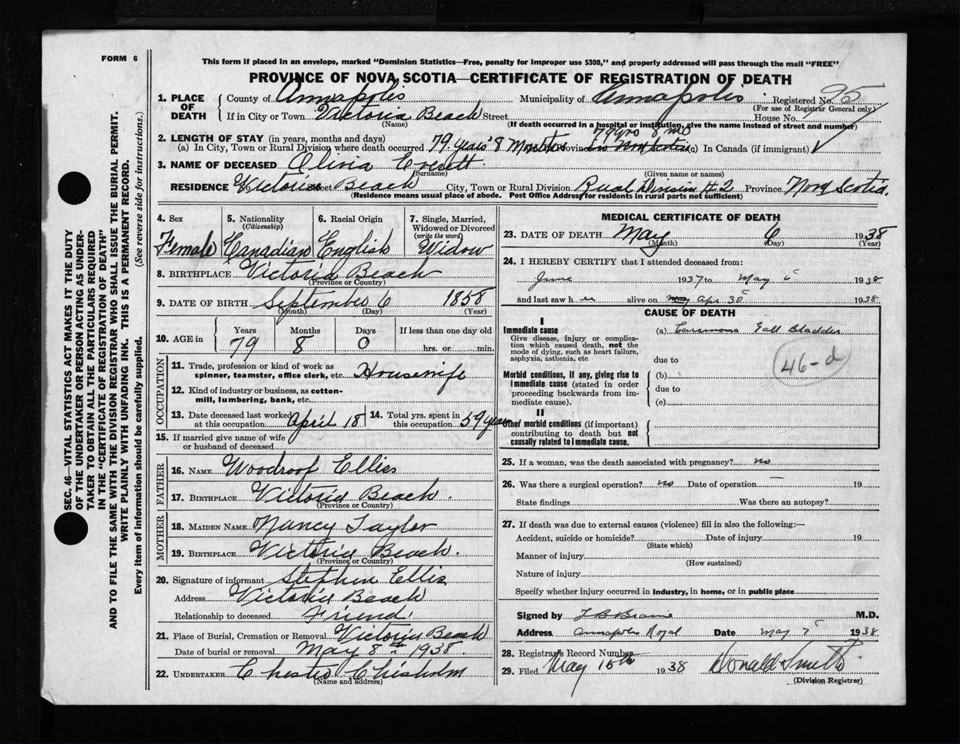 FORM 6
This form if placed in an envelope, marked "Dominion Statistics—Free, penalty for improper use $300," and properly addressed will pass through the mail "FREE"
PROVINCE OF NOVA SCOTIA—CERTIFICATE OF REGISTRATION OF DEATH
SEC. 46—VITAL STATISTICS ACT MAKES IT THE DUTY
OF THE UNDERTAKER OR PERSON ACTING AS UNDER-
TAKER TO OBTAIN ALL THE PARTICULARS REQUIRED
IN THE "CERTIFICATE OF REGISTRATION OF DEATH"
AND TO FILE THE SAME WITH THE DIVISION REGISTRAR WHO SHALL ISSUE THE BURIAL PERMIT.
WRITE PLAINLY WITH UNFADING INK. THIS IS A PERMANENT RECORD.
Every item of information should be carefully supplied. (See reverse side for instructions.)
1. PLACE OF DEATH County of Annapolis Municipality of Annapolis Registered No. 95
(For use of Registrar General only)
If in City or Town Victoria Beach Street House No.
(Name) (If death occurred in a hospital or institution, give the name instead of street and number)
2. LENGTH OF STAY (in years, months and days) 79 yrs 8 mo
(a) In City, Town or Rural Division where death occurred 79 years 8 Months Province (c) In Canada (if immigrant)
3. NAME OF DECEASED Olivia Everett
(Surname) (Given name or names)
RESIDENCE Victoria Beach Street City, Town or Rural Division Rural Division #2 Province Nova Scotia
(Residence means usual place of abode. Post Office Address for residents in rural parts not sufficient)
4. Sex Female
5. Nationality (Citizenship) Canadian
6. Racial Origin English
7. Single, Married, Widowed or Divorced (write the word) Widow
8. BIRTHPLACE Victoria Beach
(Province or County)
9. DATE OF BIRTH September 6 1858
(Month) (Day) (Year)
10. AGE in Years Months Days If less than one day old
79 8 0 hrs. or min.
OCCUPATION
11. Trade, profession or kind of work as
spinner, teamster, office clerk, etc. Housewife
12. Kind of industry or business, as cotton-
mill, lumbering, bank, etc.
13. Date deceased last worked
at this occupation April 18
14. Total yrs. spent in
this occupation 59 years
15. If married give name of wife
or husband of deceased
FATHER
16. NAME Woodroof Ellis
17. BIRTHPLACE Victoria Beach.
(Province or County)
MOTHER
18. MAIDEN NAME Nancy Taylor
19. BIRTHPLACE Victoria Beach.
(Province or County)
20. Signature of informant Stephen Ellis
Address Victoria Beach
Relationship to deceased Friend
21. Place of Burial, Cremation or Removal Victoria Beach
Date of burial or removal May 8th 1938.
22. UNDERTAKER Chester Chisholm
(Name and address)
MEDICAL CERTIFICATE OF DEATH
23. DATE OF DEATH May 6 1938
(Month) (Day) (Year)
24. I HEREBY CERTIFY that I attended deceased from:
June 1937 to May 1938
and last saw her alive on Apr 30 1938.
CAUSE OF DEATH
I
Immediate cause
Give disease, injury or compli-
cation which caused death, not the
mode of dying, such as heart failure,
asphyxia, asthenia, etc
(a) Carcinoma Gall Bladder
due to
46-d
Morbid conditions, if any, giving rise to
immediate cause (stated in order
proceeding backwards from im-
mediate cause).
(b)
due to
(c)
II
Other morbid conditions (if important)
contributing to death but not
causally related to immediate cause.
25. If a woman, was the death associated with pregnancy? no
26. Was there a surgical operation? no Date of operation — 19
State findings Was there an autopsy?
27. If death was due to external causes (violence) fill in also the following:—
Accident, suicide or homicide? Date of injury 19
(State which)
Manner of injury
(How sustained)
Nature of injury
Specify whether injury occurred in industry, in home, or in public place
Signed by M.D.
Address Annapolis Royal Date May 1938.
28. Registrar's Record Number
29. Filed May 10th 1938 Donald Smith
(Division Registrar)